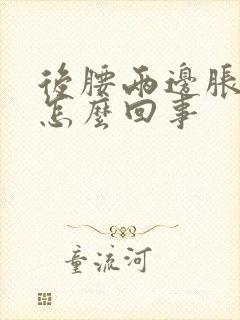 後腰兩邊脹
怎麼回事
童流河